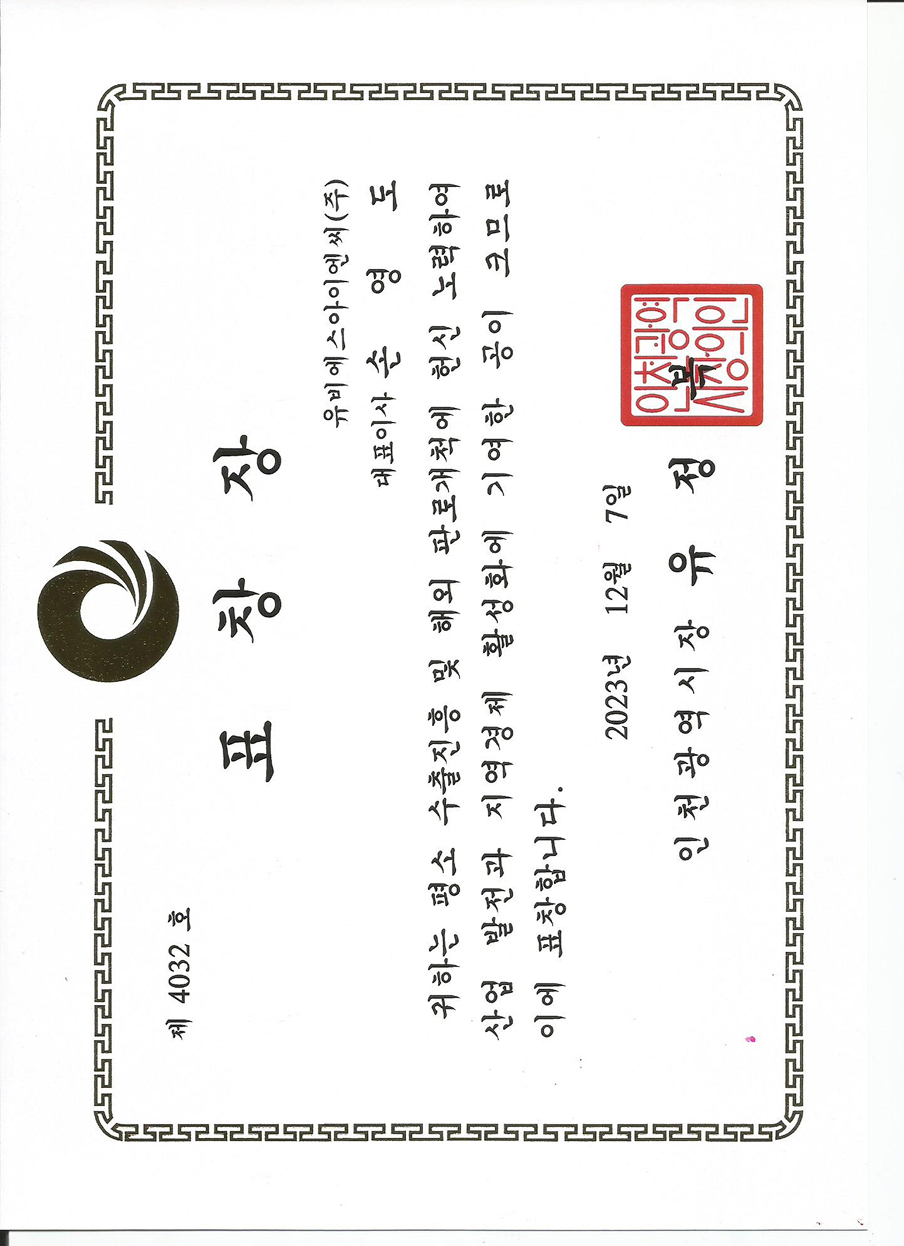 제 4032 호
표 창 장
유비에스아이엔씨(주)
대표이사 손 영 도
귀하는 평소 수출진흥 및 해외 판로개척에 헌신 노력하여
산업 발전과 지역경제 활성화에 기여한 공이 크므로
이에 표창합니다.
2023년 12월 7일
인천광역시장 유 정 복
인천광역시장의인